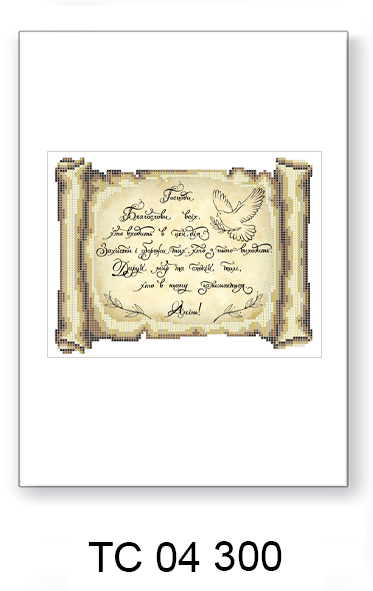 Господи,
Благослови всіх,
хто входить в цей дім
Захисти і збережи тих, хто з нього виходить.
Даруй мир та спокій тим,
хто в ньому залишається
Амінь!
TC 04 300